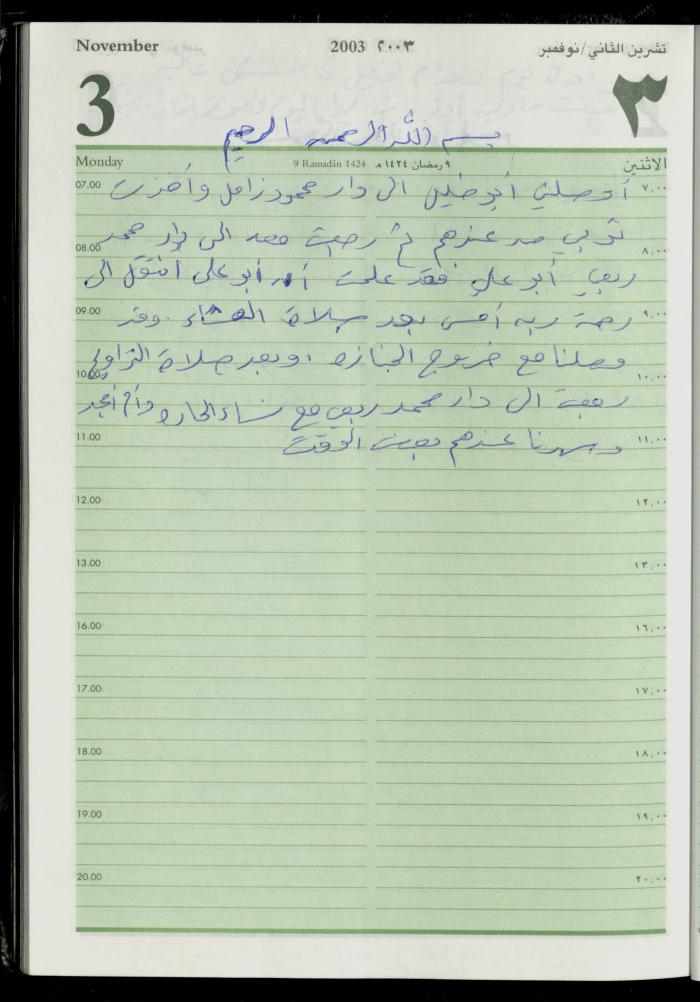 November 2003 ٢٠٠٣ تشرين الثاني/نوفمبر
3 ٣
بسم الله الرحمن الرحيم
Monday 9 Ramadân 1424 ٩ رمضان ١٤٢٤ هـ الاثنين
07.00 أوصلني أبو خليل الى دار محمود زامل وأخذت ٧,٠٠
ثوبي من عندهم ثم رجعت معه الى دار محمد
08.00 ٨,٠٠
ربعي أبو علي فقد علمت أن أبو علي انتقل الى
09.00 رحمة ربه أمس بعد صلاة العشاء وقد ٩,٠٠
وصلنا مع خروج الجنازه وبعد صلاة التراويح
10.00 ١٠,٠٠
رجعت الى دار محمد ربعي مع نساء الحاره وأم أمجد
11.00 وسهرنا عندهم بعض الوقت ١١,٠٠
12.00 ١٢,٠٠
13.00 ١٣,٠٠
16.00 ١٦,٠٠
17.00 ١٧,٠٠
18.00 ١٨,٠٠
19.00 ١٩,٠٠
20.00 ٢٠,٠٠